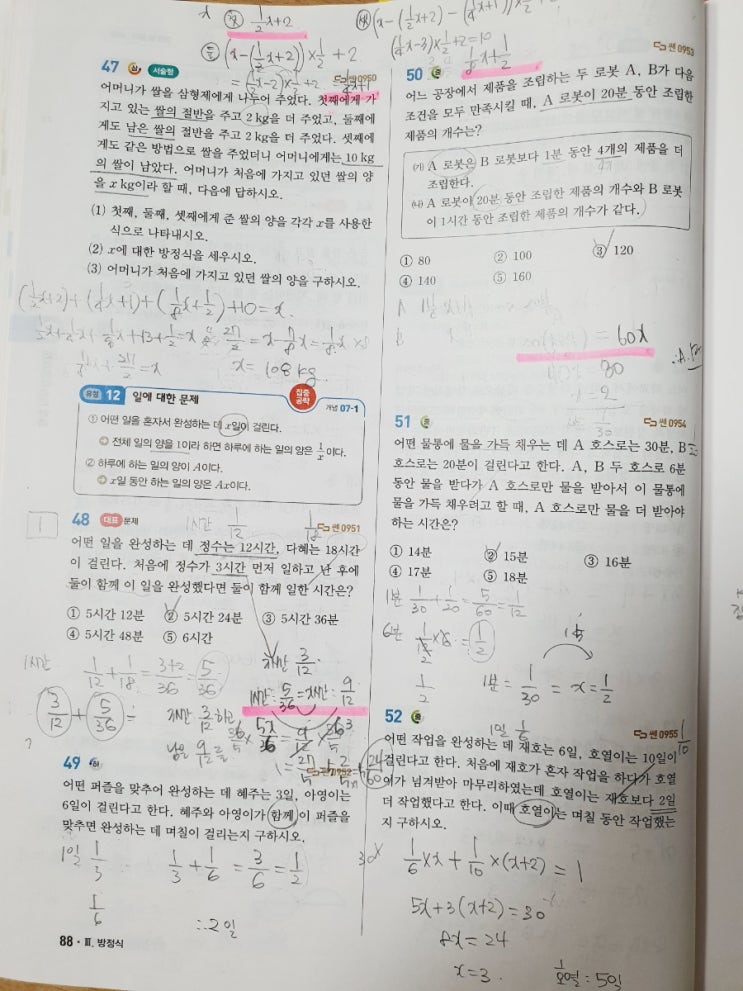 x 첫 1/2x+2
둘 (x-(1/2x+2))×1/2+2
=(1/2x-2)×1/2+2
1/4x+1
쎈 0950
47 상 서술형
어머니가 쌀을 삼형제에게 나누어 주었다. 첫째에게 가
지고 있는 쌀의 절반을 주고 2 kg을 더 주었고, 둘째에
게도 남은 쌀의 절반을 주고 2 kg을 더 주었다. 셋째에
게도 같은 방법으로 쌀을 주었더니 어머니에게는 10 kg
의 쌀이 남았다. 어머니가 처음에 가지고 있던 쌀의 양
을 x kg이라 할 때, 다음에 답하시오.
(1) 첫째, 둘째, 셋째에게 준 쌀의 양을 각각 x를 사용한
식으로 나타내시오.
(2) x에 대한 방정식을 세우시오.
(3) 어머니가 처음에 가지고 있던 쌀의 양을 구하시오.
(1/2x+2)+(1/4x+1)+(1/8x+1/2)+10=x
x=108kg
유형 12 일에 대한 문제
집중 공략
개념 07-1
① 어떤 일을 혼자서 완성하는 데 x일이 걸린다.
전체 일의 양을 1이라 하면 하루에 하는 일의 양은 1/x이다.
② 하루에 하는 일의 양이 A이다.
x일 동안 하는 일의 양은 Ax이다.
1시간 1/12 1/18
48 대표문제
쎈 0951
어떤 일을 완성하는 데 정수는 12시간, 다혜는 18시간
이 걸린다. 처음에 정수가 3시간 먼저 일하고 난 후에
둘이 함께 이 일을 완성했다면 둘이 함께 일한 시간은?
① 5시간 12분 ② 5시간 24분 ③ 5시간 36분
④ 5시간 48분 ⑤ 6시간
1시간 1/12+1/18=3+2/36=5/36
3/12+5/36=
49 하
쎈 0952
어떤 퍼즐을 맞추어 완성하는 데 혜주는 3일, 아영이는
6일이 걸린다고 한다. 혜주와 아영이가 함께 이 퍼즐을
맞추면 완성하는 데 며칠이 걸리는지 구하시오.
1일 1/3 1/3+1/6=3/6=1/2
1/6
∴2일
88 · Ⅲ. 방정식
1/8x+1/2
쎈 0953
50 중
어느 공장에서 제품을 조립하는 두 로봇 A, B가 다음
조건을 모두 만족시킬 때, A 로봇이 20분 동안 조립한
제품의 개수는?
㈎ A 로봇은 B 로봇보다 1분 동안 4개의 제품을 더
조립한다.
㈏ A 로봇이 20분 동안 조립한 제품의 개수와 B 로봇
이 1시간 동안 조립한 제품의 개수가 같다.
① 80 ② 100 ③ 120
④ 140 ⑤ 160
=60x
51 중
쎈 0954
어떤 물통에 물을 가득 채우는 데 A 호스로는 30분, B
호스로는 20분이 걸린다고 한다. A, B 두 호스로 6분
동안 물을 받다가 A 호스로만 물을 받아서 이 물통에
물을 가득 채우려고 할 때, A 호스로만 물을 더 받아야
하는 시간은?
① 14분 ② 15분 ③ 16분
④ 17분 ⑤ 18분
1분 1/30+1/20=5/60=1/12
6분 1/12×6=1/2
1/2 1분=1/30=x=1/2
1일 1/6
1/10
52 중
쎈 0955
어떤 작업을 완성하는 데 재호는 6일, 호열이는 10일이
걸린다고 한다. 처음에 재호가 혼자 작업을 하다가 호열
이가 넘겨받아 마무리하였는데 호열이는 재호보다 2일
더 작업했다고 한다. 이때 호열이는 며칠 동안 작업했는
지 구하시오.
1/6×x+1/10×(x+2)=1
5x+3(x+2)=30
8x=24
x=3
호열:5일